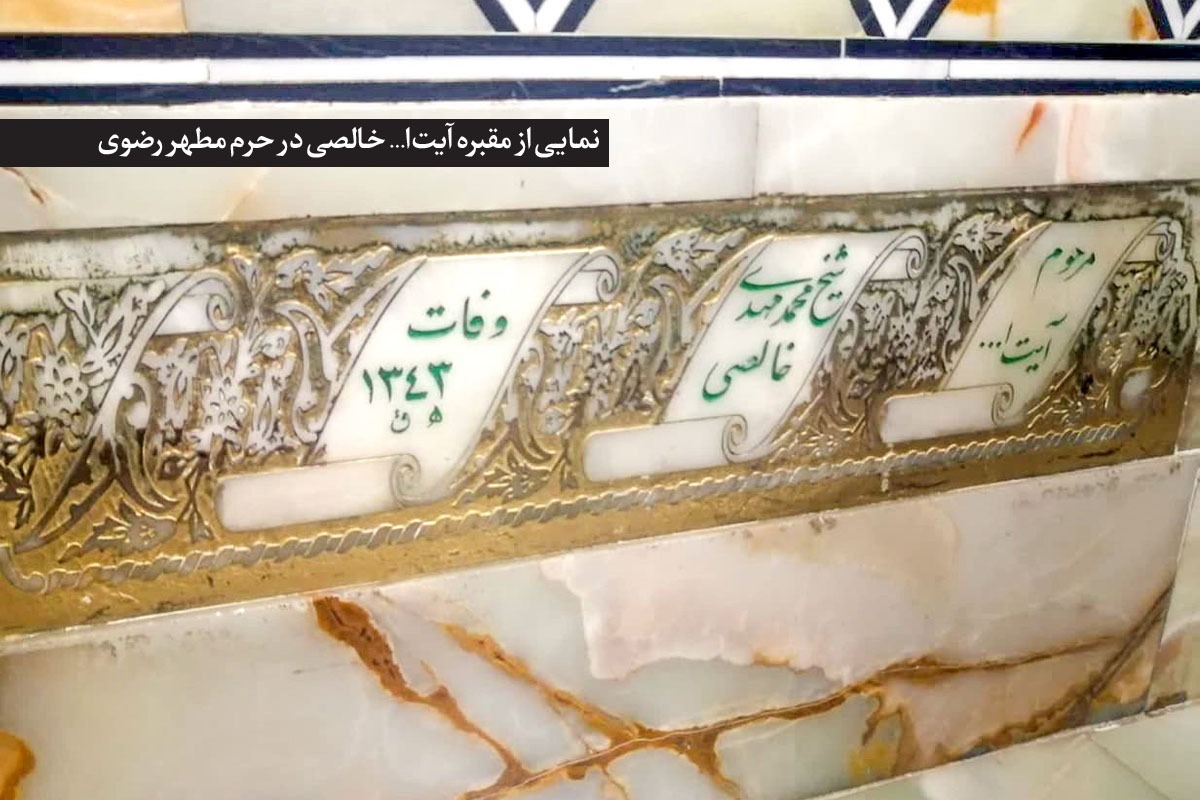 نمایی از مقبره آیت‌ا... خالصی در حرم مطهر رضوی
مرحوم
آیت‌ا...
شیخ محمد مهدی
خالصی
وفات
۱۳٤۳
ه ق